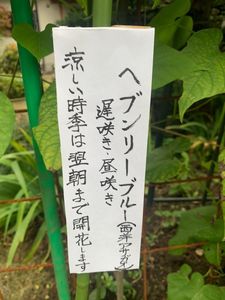 ヘブンリーブルー(西洋アサガオ)
遅咲き・昼咲き
涼しい時季は翌朝まで開花します